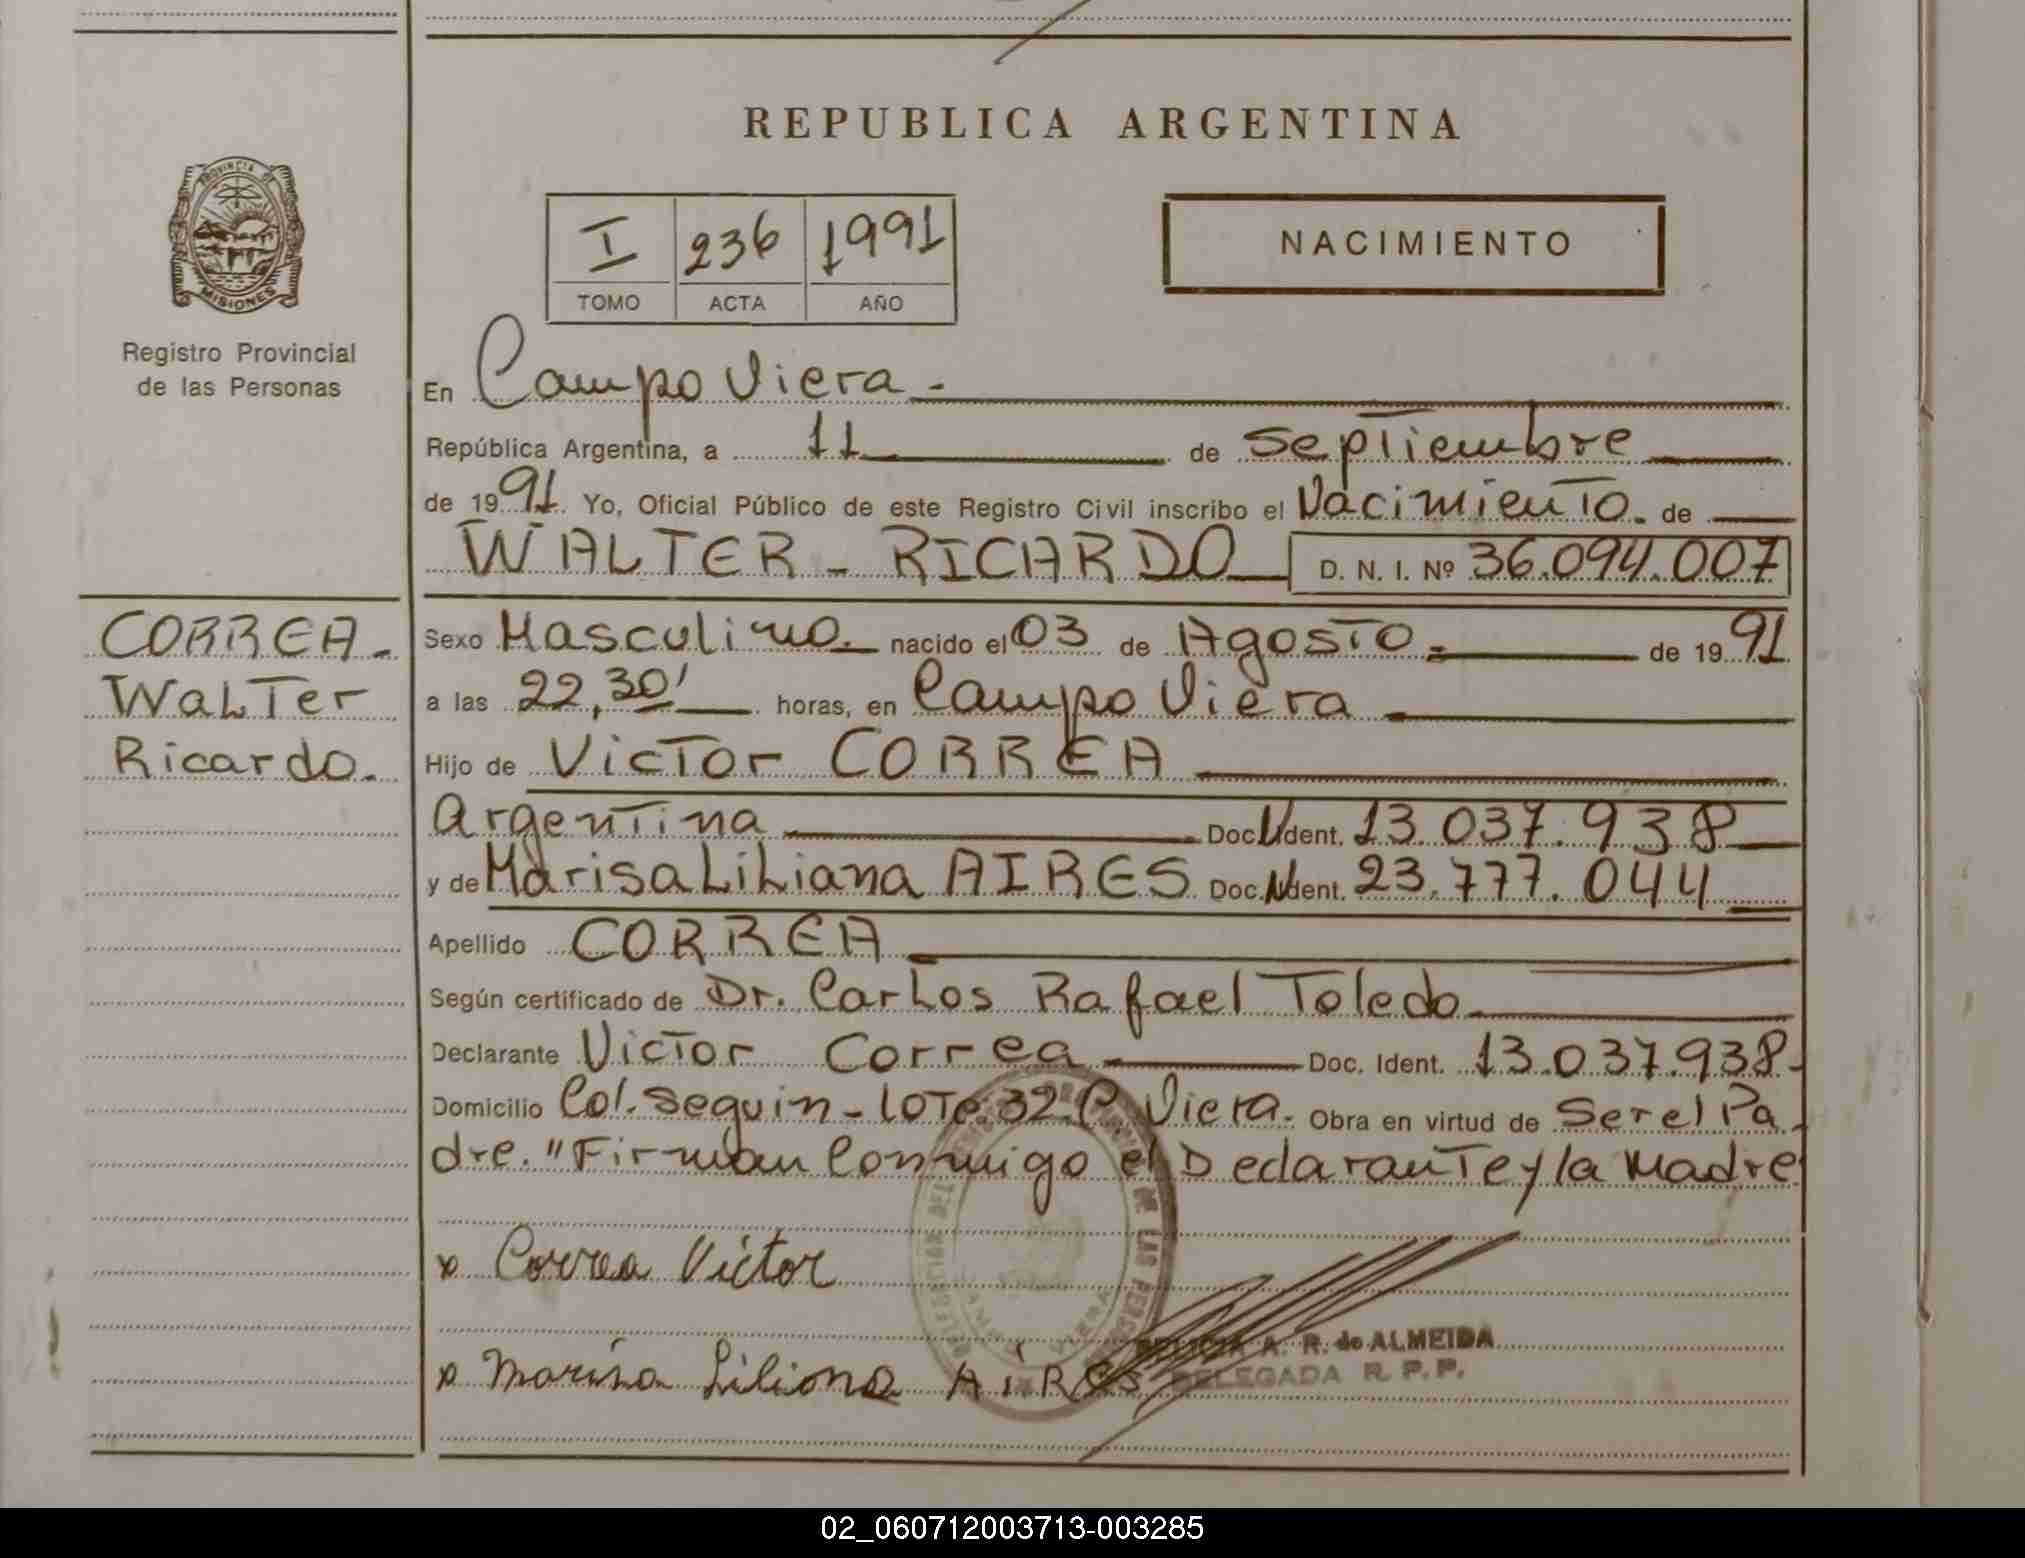 REPUBLICA ARGENTINA
PROVINCIA DE
MISIONES
Registro Provincial
de las Personas
I 236 1991
TOMO ACTA AÑO
NACIMIENTO
En Campo Viera -
República Argentina, a 11 de Septiembre
de 1991. Yo, Oficial Público de este Registro Civil inscribo el Nacimiento. de
WALTER - RICARDO D. N. I. Nº 36.094.007
CORREA -
Walter
Ricardo.
Sexo Masculino. nacido el 03 de Agosto de 1991
a las 22,30' horas, en Campo Viera
Hijo de Victor CORREA
Argentina Doc. Ident. 13.037.938
y de Marisa Liliana AIRES Doc. Ident. 23.777.044
Apellido CORREA
Según certificado de Dr. Carlos Rafael Toledo
Declarante Victor Correa Doc. Ident. 13.037.938-
Domicilio Col. Seguin - Lote 32 C. Viera. Obra en virtud de Ser el Pa
dre. "Firman Conmigo el Declarante y la Madre
x Correa Victor
x Marisa Liliana AiRes
FELICIA A. R. de ALMEIDA
DELEGADA R. P. P.
02_060712003713-003285